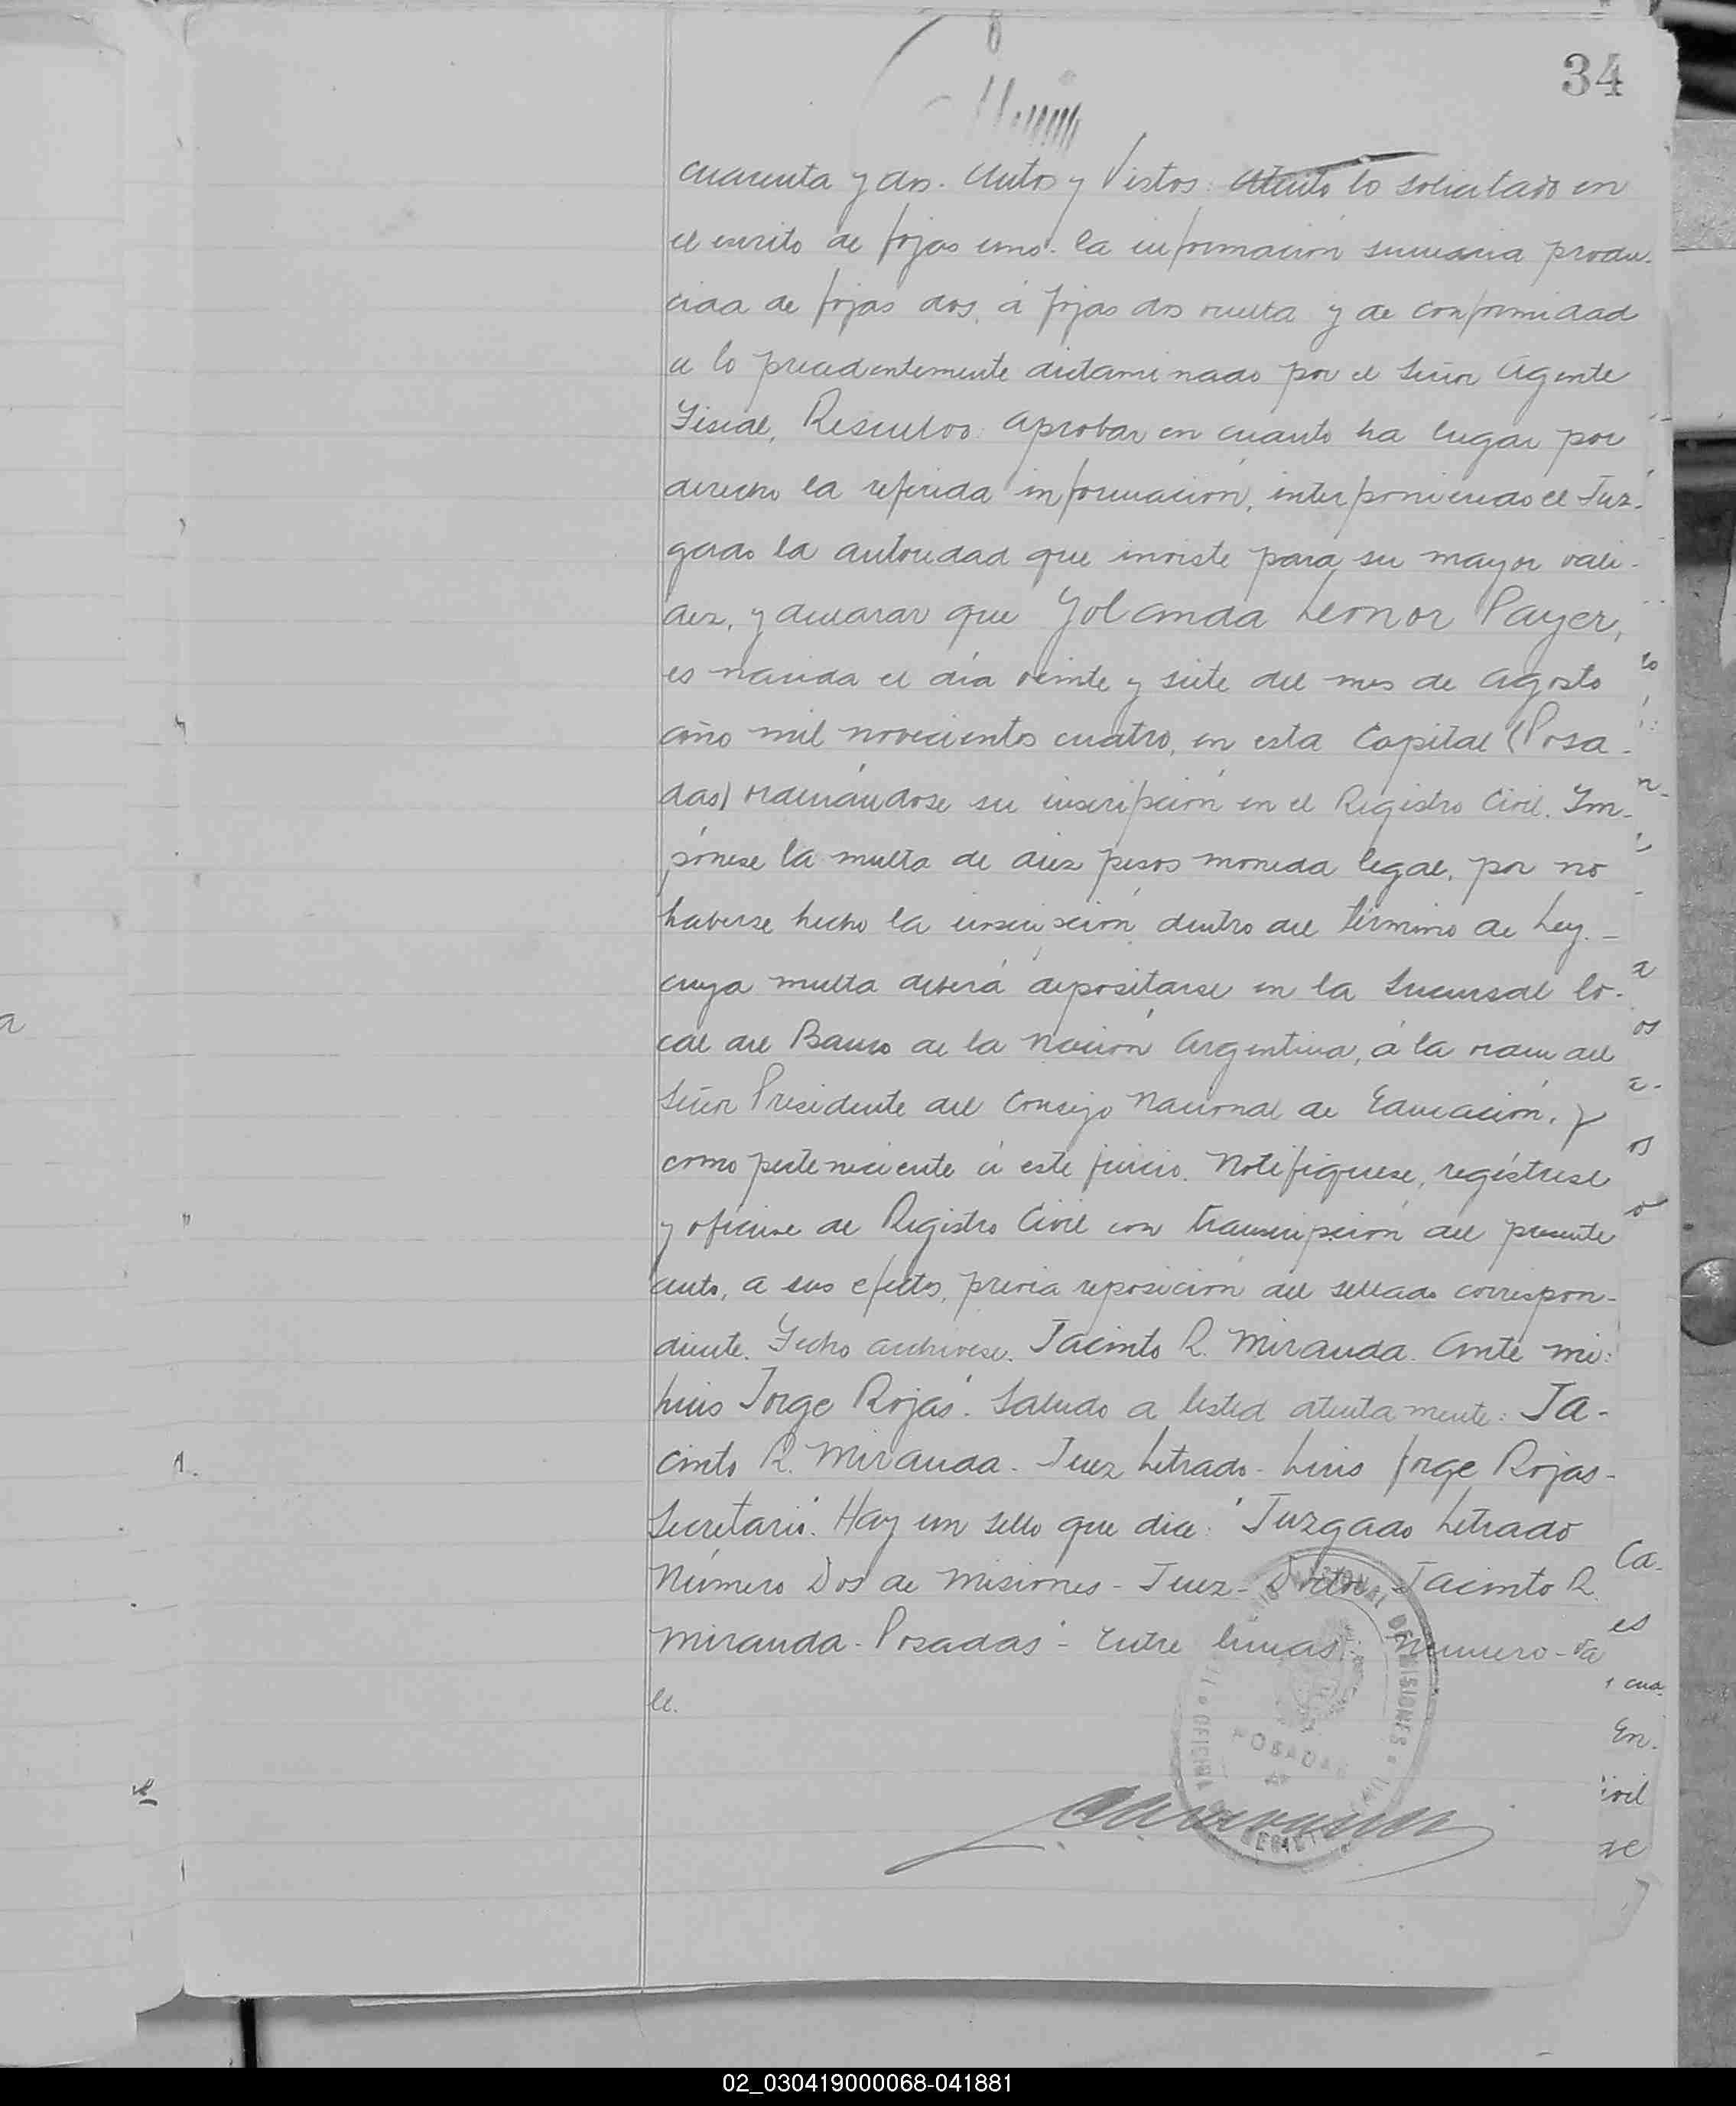 34
cuarenta y dos. Autos y Vistos: Atento lo solicitado en
el escrito de fojas uno. la información sumaria produ-
cida de fojas dos, á fojas dos vuelta y de conformidad
a lo precedentemente dictaminado por el Señor Agente
Fiscal, Resuelvo: aprobar en cuanto ha lugar por
derecho la referida información, interponiendo el Juz-
gado la autoridad que inviste para su mayor vali-
dez, y declarar que Yolanda Leonor Payer,
es nacida el día veinte y siete del mes de Agosto
año mil novecientos cuatro, en esta Capital (Posa-
das) ordenándose su inscripción en el Registro Civil. Im-
pónese la multa de diez pesos moneda legal, por no
haberse hecho la inscripción dentro del término de Ley.-
cuya multa deberá depositarse en la Sucursal lo-
cal del Banco de la Nación Argentina, á la orden del
Señor Presidente del Consejo Nacional de Educación, y
como perteneciente á este juicio. Notifíquese, regístrese
y ofíciese al Registro Civil con transcripción del presente
auto, a sus efectos, previa reposición del sellado correspon-
diente. Fecho archívese. Jacinto R. Miranda. Ante mi:
Luis Jorge Rojas". Saludo a Usted atentamente: Ja-
cinto R. Miranda - Juez Letrado - Luis Jorge Rojas -
Secretario". Hay un sello que dice: "Juzgado Letrado
Número Dos de Misiones - Juez - Doctor Jacinto R.
Miranda - Posadas" - Entre lineas: número - Va
le.
POSADAS
02_030419000068-041881